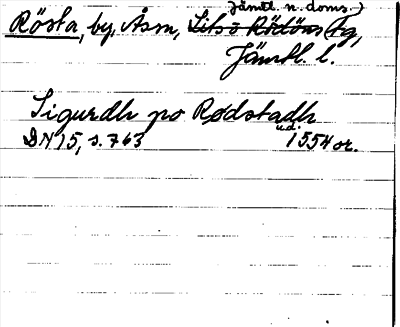 Jämtl. n. doms.)
Rösta, by, Åsm, Lits o Rödöns tg,
Jämtl. l.
Sigurdh po Rødstadh
u.d.
DN 15, s. 763 1554 or.